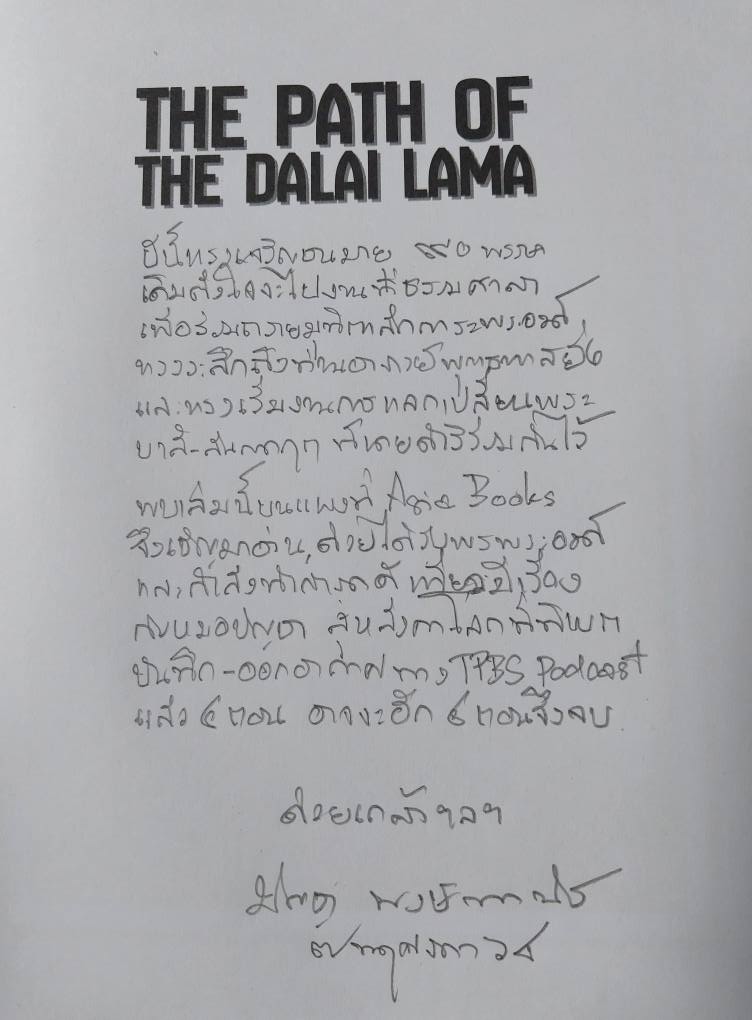 THE PATH OF
THE DALAI LAMA
ปีนี้ทรงเจริญชนมายุ ๙๐ พรรษา
เดิมตั้งใจจะไปงานที่ธรรมศาลา
เพื่อร่วมถวายมุทิตาสักการะพระองค์
ทรงระลึกถึงท่านอาจารย์พุทธทาส
และทรงเรื่องงานการแลกเปลี่ยนพระ
บาลี-สันสกฤต ที่เคยดำริร่วมกันไว้
พบเล่มนี้บนแผงที่ Asia Books
จึงเชิญมาอ่าน, ด้วยได้รับพรพระองค์
และกำลังทำสารคดี เรื่อง
สู่หลังคาโลกที่ทิเบต
บันทึก-ออกอากาศทาง TPBS Podcast
แล้ว ๔ ตอน อาจจะอีก ๔ ตอนจึงจบ
ด้วยเกล้าฯลฯ
บัญชา พงษ์พานิช